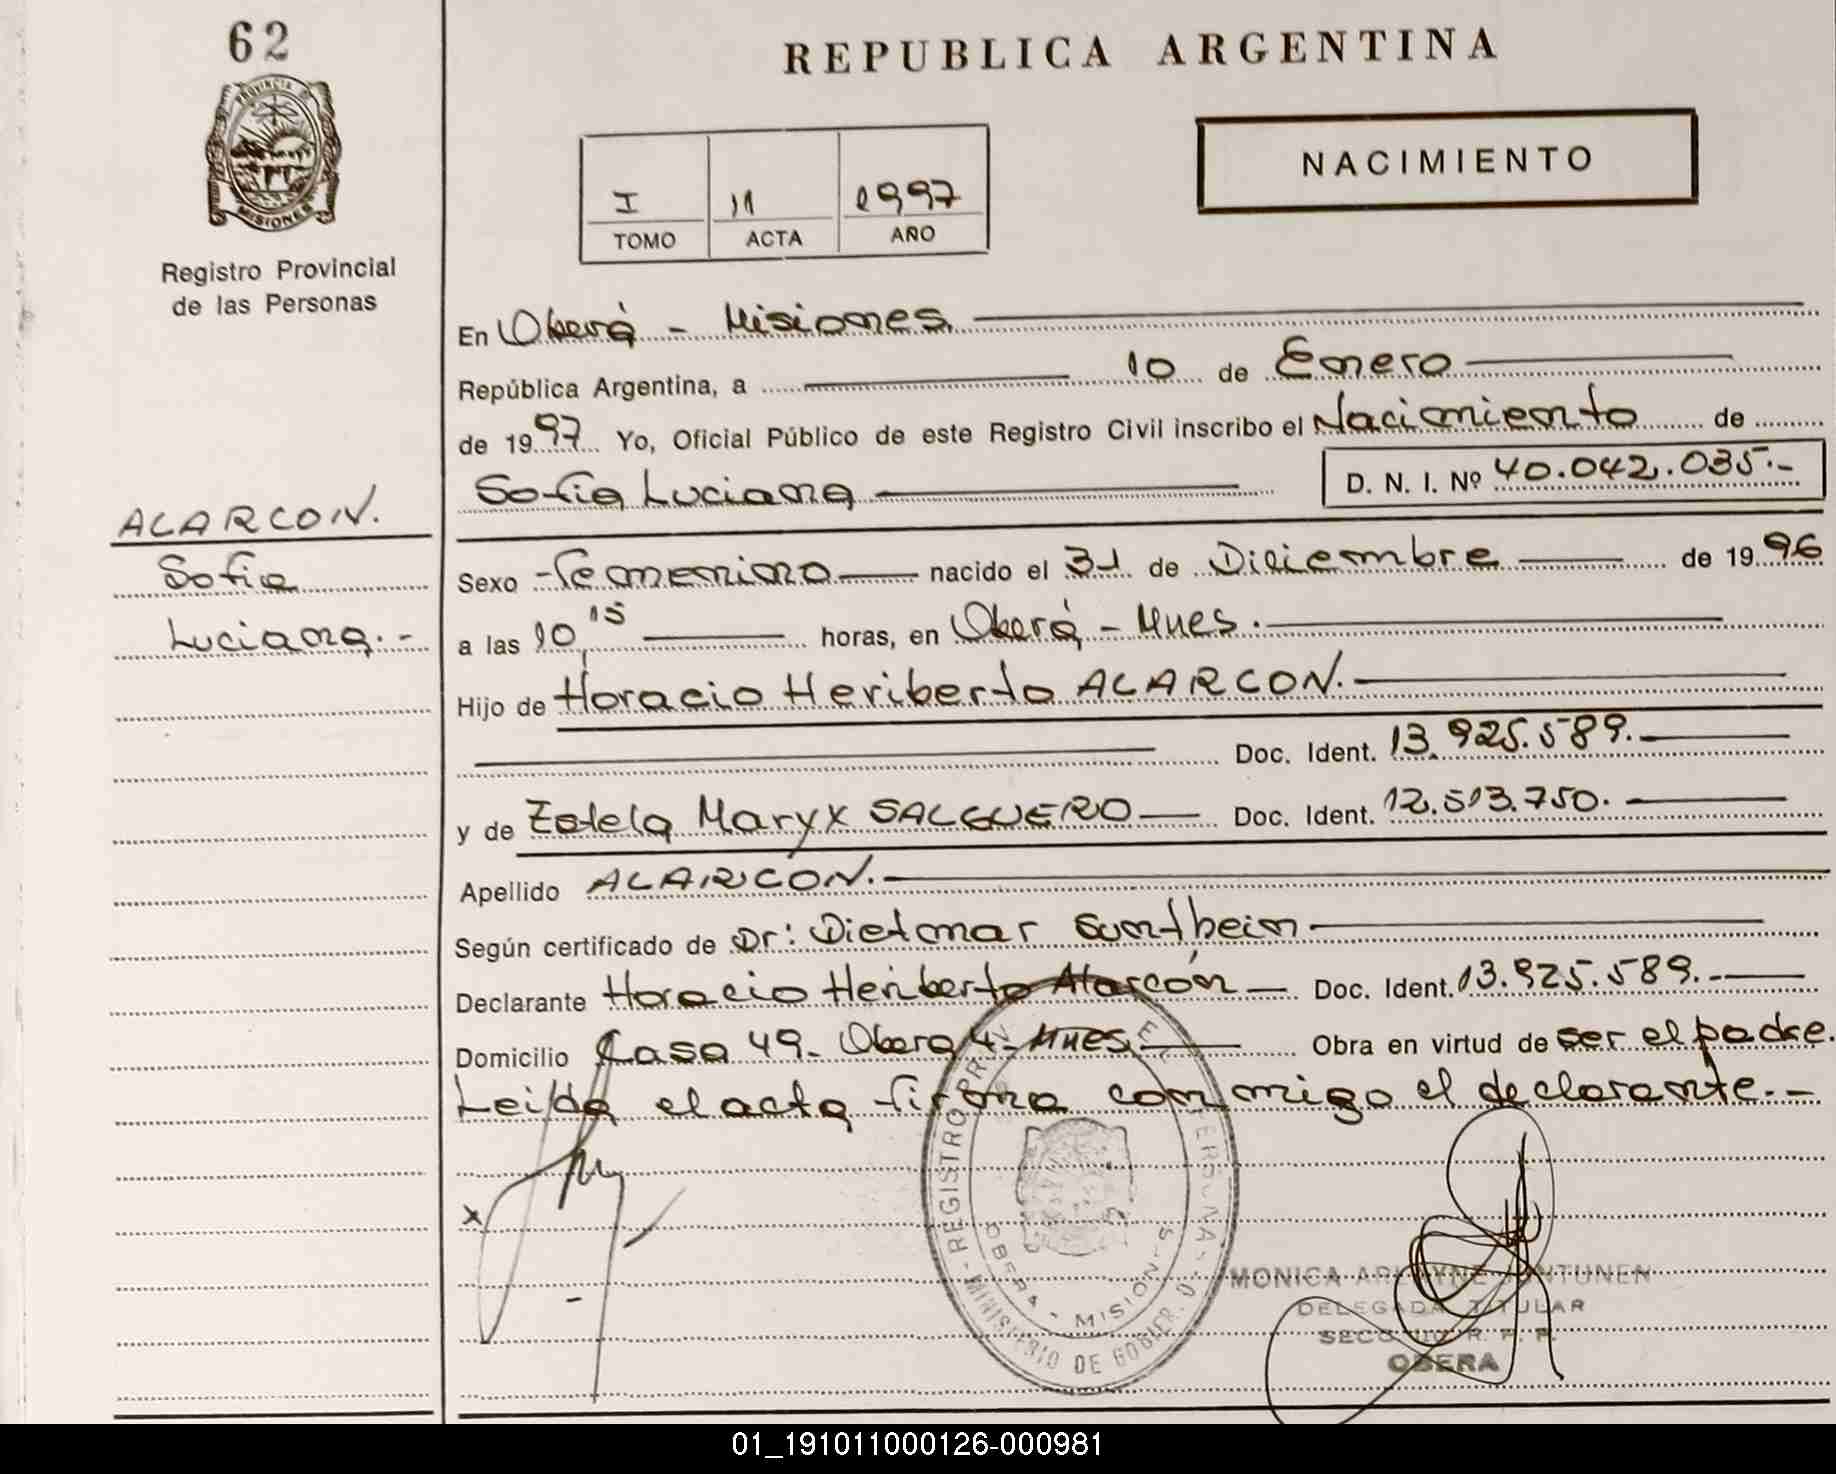 62
REPUBLICA ARGENTINA
PROVINCIA DE
MISIONES
Registro Provincial
de las Personas
I 11 1997
TOMO ACTA AÑO
NACIMIENTO
En Oberá - Misiones.
República Argentina, a 10 de Enero
de 1997 Yo, Oficial Público de este Registro Civil inscribo el Nacimiento de
Sofia Luciana D. N. I. Nº 40.042.035.-
ALARCON.
Sofia
Luciana.-
Sexo femenino nacido el 31 de Diciembre de 1996
a las 10,15 horas, en Oberá - Mnes.
Hijo de Horacio Heriberto ALARCON.
Doc. Ident. 13.925.589.
y de Maryx SALGUERO Doc. Ident. 12.513.750.
Apellido ALARCON.
Según certificado de Dr: Dietmar Suntheim
Declarante Horacio Heriberto Alarcón Doc. Ident. 13.925.589.-
Domicilio Casa 49. Oberá 4. Mnes. Obra en virtud de ser el padre.
Leída el acta firma conmigo el declarante.-
x
REGISTRO PROV
OBERA - MISIONES
MINISTERIO DE GOBIER
MONICA
DELEGADA TITULAR
R. P. P.
OBERA
01_191011000126-000981